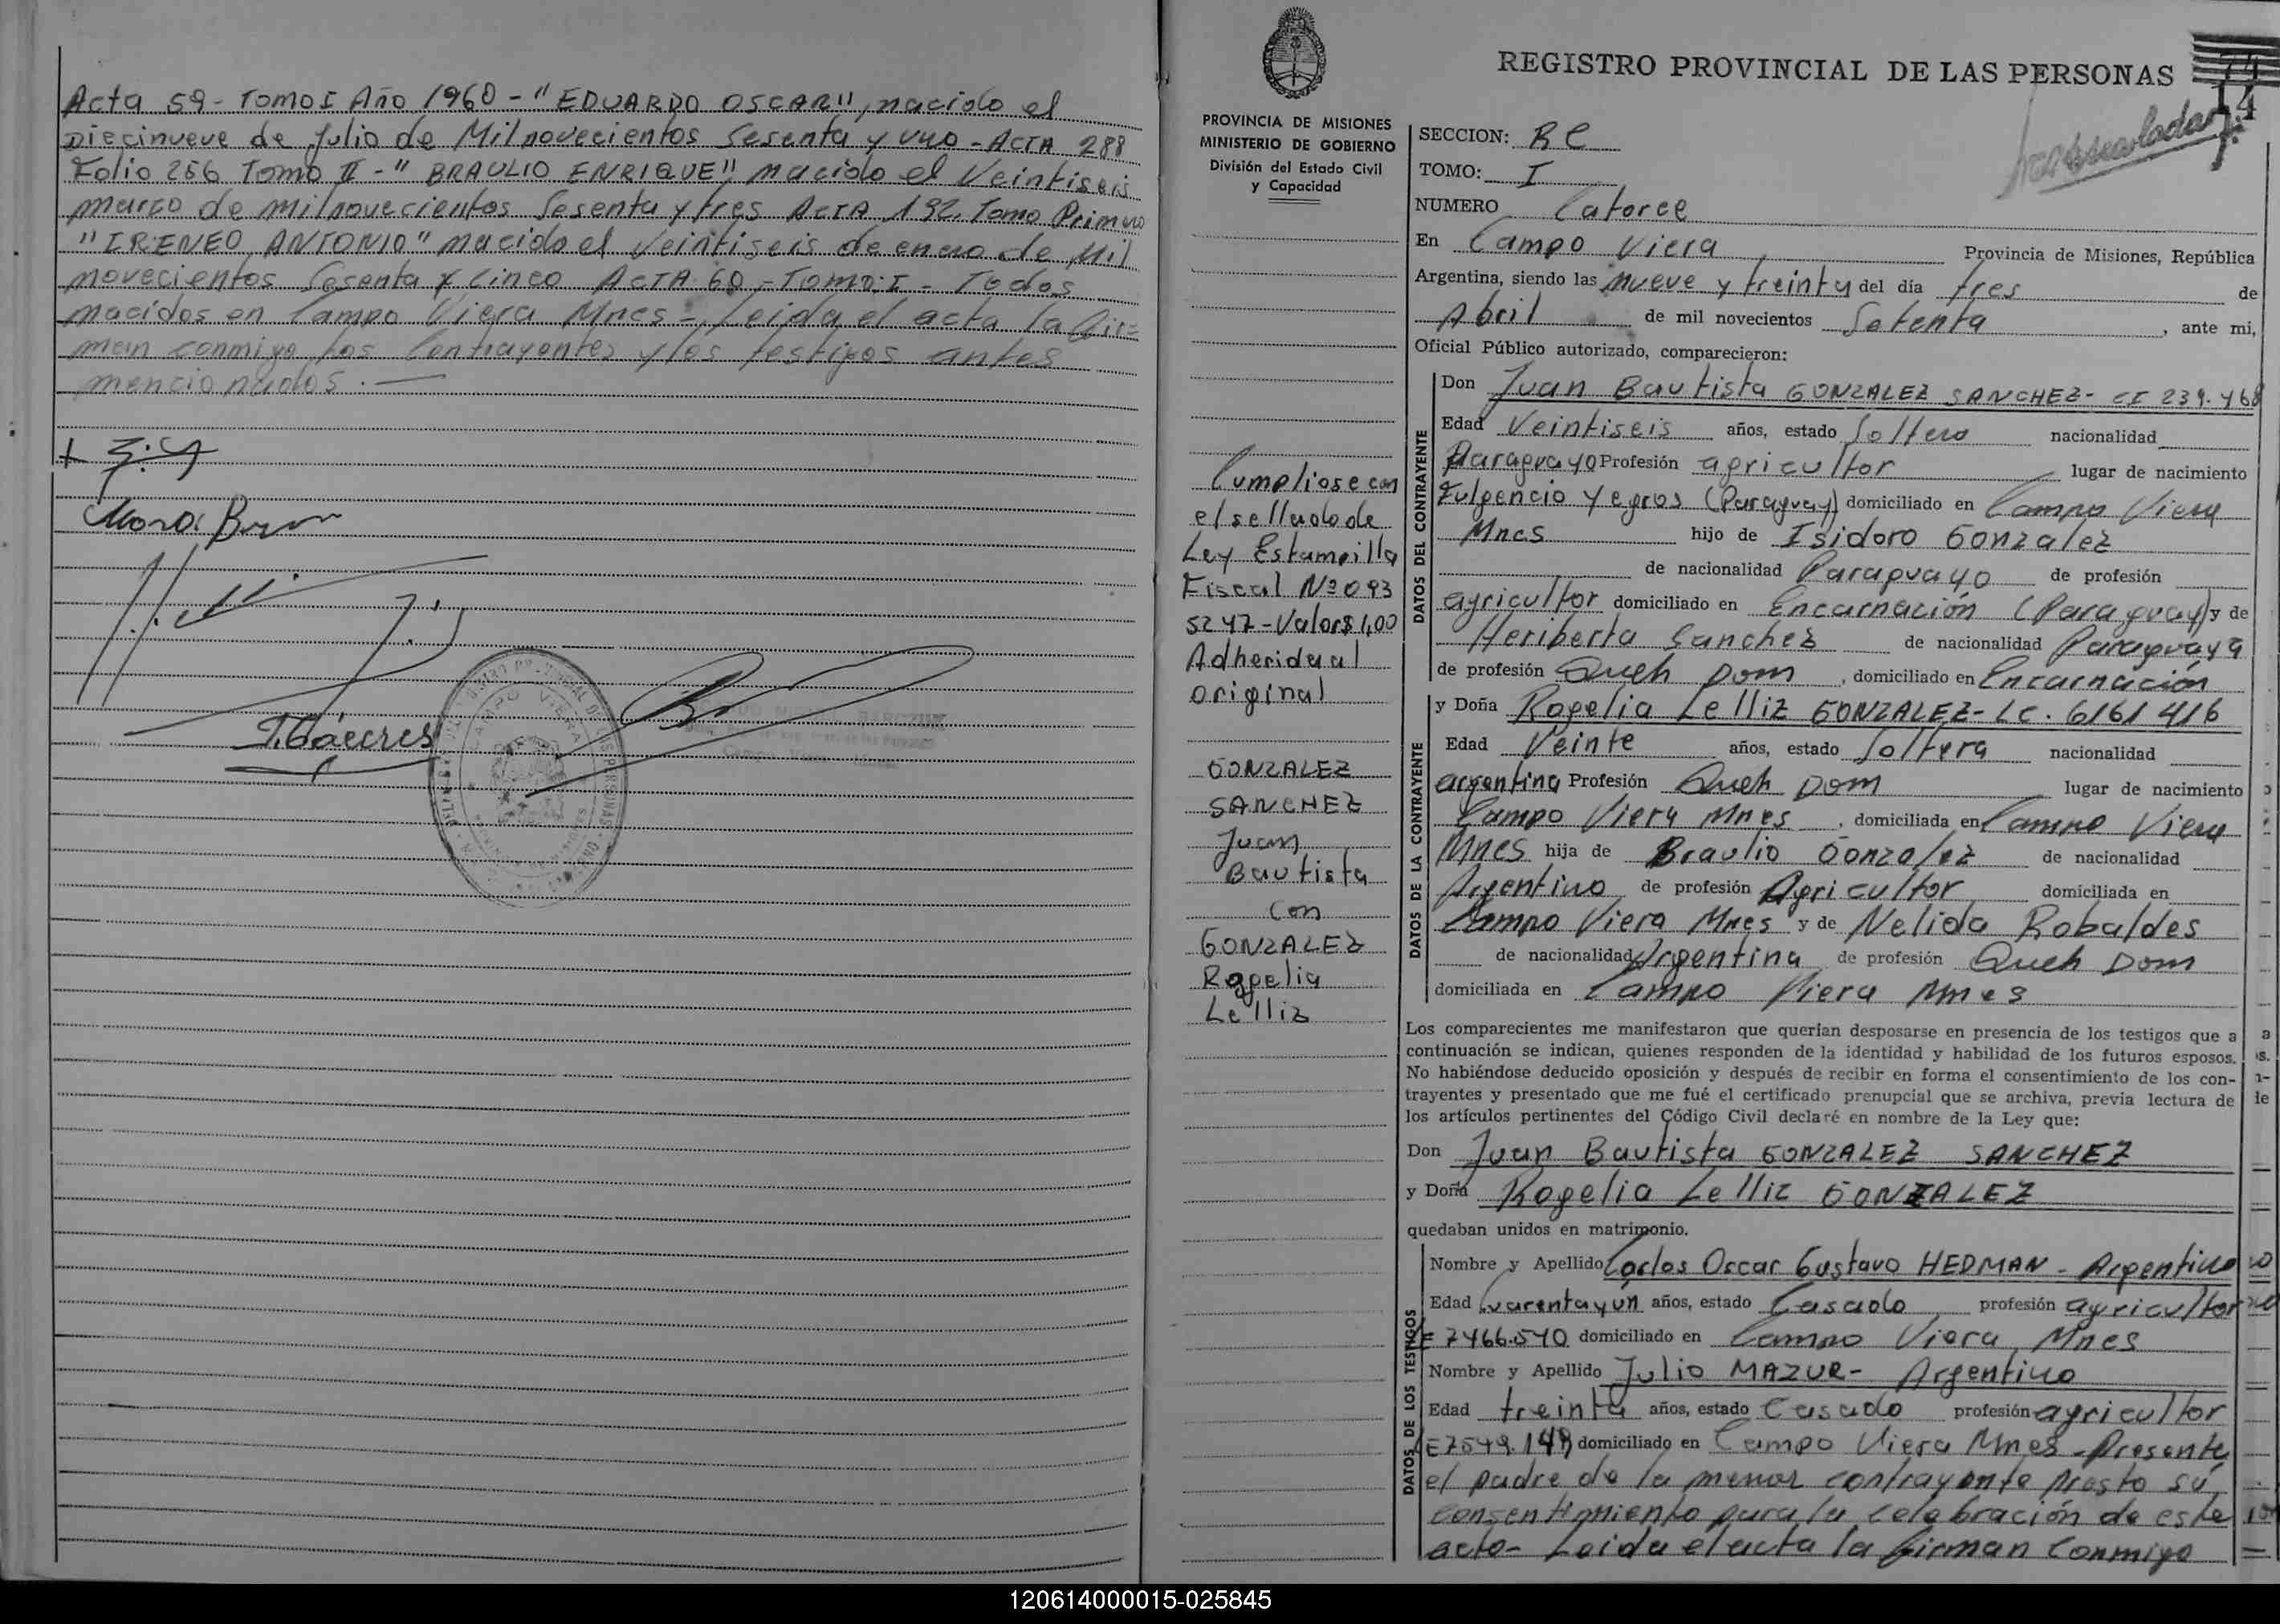 Acta 59 - Tomo I Año 1960 - "EDUARDO OSCAR", nacido el
Diecinueve de Julio de Mil novecientos Sesenta y uno - ACTA 288
Folio 256 Tomo II - "BRAULIO ENRIQUE" nacido el Veintiseis
marzo de mil novecientos Sesenta y tres ACTA 192. Tomo Primero
"IRENEO ANTONIO" nacido el veintiseis de enero de Mil
novecientos Sesenta y Cinco ACTA 60 - Tomo: I - Todos
nacidos en Campo Viera Mnes - Leida el acta la fir=
man conmigo los Contrayentes y los testigos antes
mencionados. —
T. Cáceres
CAMPO VIERA
REGISTRO PROVINCIAL DE LAS PERSONAS
14
PROVINCIA DE MISIONES
MINISTERIO DE GOBIERNO
División del Estado Civil
y Capacidad
Cumpliose con
el sellado de
Ley Estampilla
Fiscal Nº 093
5247 - Valor $ 1,00
Adherida al
original
GONZALEZ
SANCHEZ
Juan
Bautista
con
GONZALEZ
Rogelia
Lelliz
SECCION: RC
TOMO: I
NUMERO Catorce
En Campo Viera Provincia de Misiones, República
Argentina, siendo las nueve y treinta del día tres de
Abril de mil novecientos Setenta, ante mi,
Oficial Público autorizado, comparecieron:
DATOS DEL CONTRAYENTE
Don Juan Bautista GONZALEZ SANCHEZ - CI 239.468
Edad Veintiseis años, estado Soltero nacionalidad
Paraguayo Profesión agricultor lugar de nacimiento
Fulgencio Yegros (Paraguay) domiciliado en Campo Viera
Mnes hijo de Isidoro Gonzalez
de nacionalidad Paraguayo de profesión
agricultor domiciliado en Encarnación (Paraguay) y de
Heriberta Sanchez de nacionalidad Paraguaya
de profesión Queh Dom, domiciliado en Encarnación
DATOS DE LA CONTRAYENTE
y Doña Rogelia Lelliz GONZALEZ - LC. 6161416
Edad Veinte años, estado Soltera nacionalidad
argentina Profesión Queh Dom lugar de nacimiento
Campo Viera Mnes, domiciliada en Campo Viera
Mnes hija de Braulio Gonzalez de nacionalidad
Argentino de profesión Agricultor domiciliada en
Campo Viera Mnes y de Nelida Robaldes
de nacionalidad Argentina de profesión Queh Dom
domiciliada en Campo Viera Mnes
Los comparecientes me manifestaron que querían desposarse en presencia de los testigos que a
continuación se indican, quienes responden de la identidad y habilidad de los futuros esposos.
No habiéndose deducido oposición y después de recibir en forma el consentimiento de los con-
trayentes y presentado que me fué el certificado prenupcial que se archiva, previa lectura de
los artículos pertinentes del Código Civil declaré en nombre de la Ley que:
Don Juan Bautista GONZALEZ SANCHEZ
y Doña Rogelia Lelliz GONZALEZ
quedaban unidos en matrimonio.
DATOS DE LOS TESTIGOS
Nombre y Apellido Carlos Oscar Gustavo HEDMAN - Argentino
Edad Cuarenta y un años, estado Casado profesión agricultor
LE 7466.540 domiciliado en Campo Viera Mnes
Nombre y Apellido Julio MAZUR - Argentino
Edad treinta años, estado Casado profesión agricultor
LE 7549.149 domiciliado en Campo Viera Mnes - Presente
el padre de la menor contrayente presto su
consentimiento para la celebración de este
acto - Leida el acta la firman conmigo
120614000015-025845